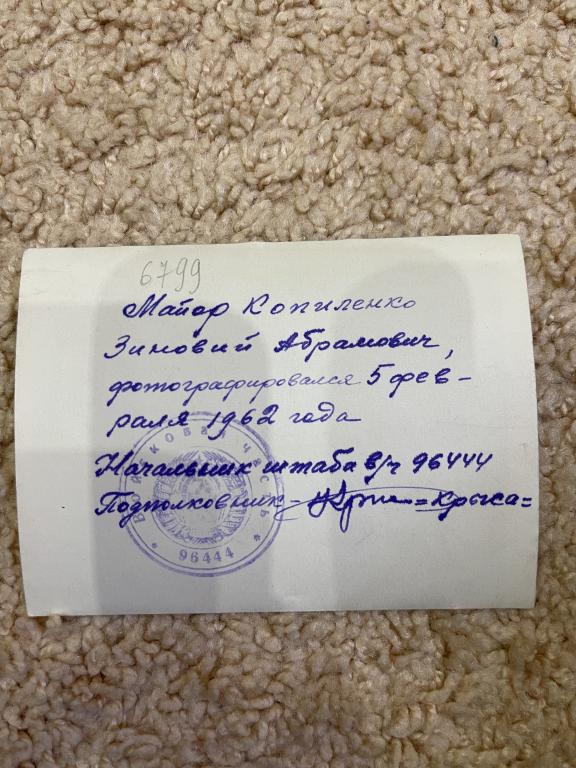 6799
Майор Копиленко
Зиновий Абрамович,
фотографировался 5 фев-
раля 1962 года
Начальник штаба в/ч 96444
Подполковник - =Крыса=
Войсковая часть
* 96444 *